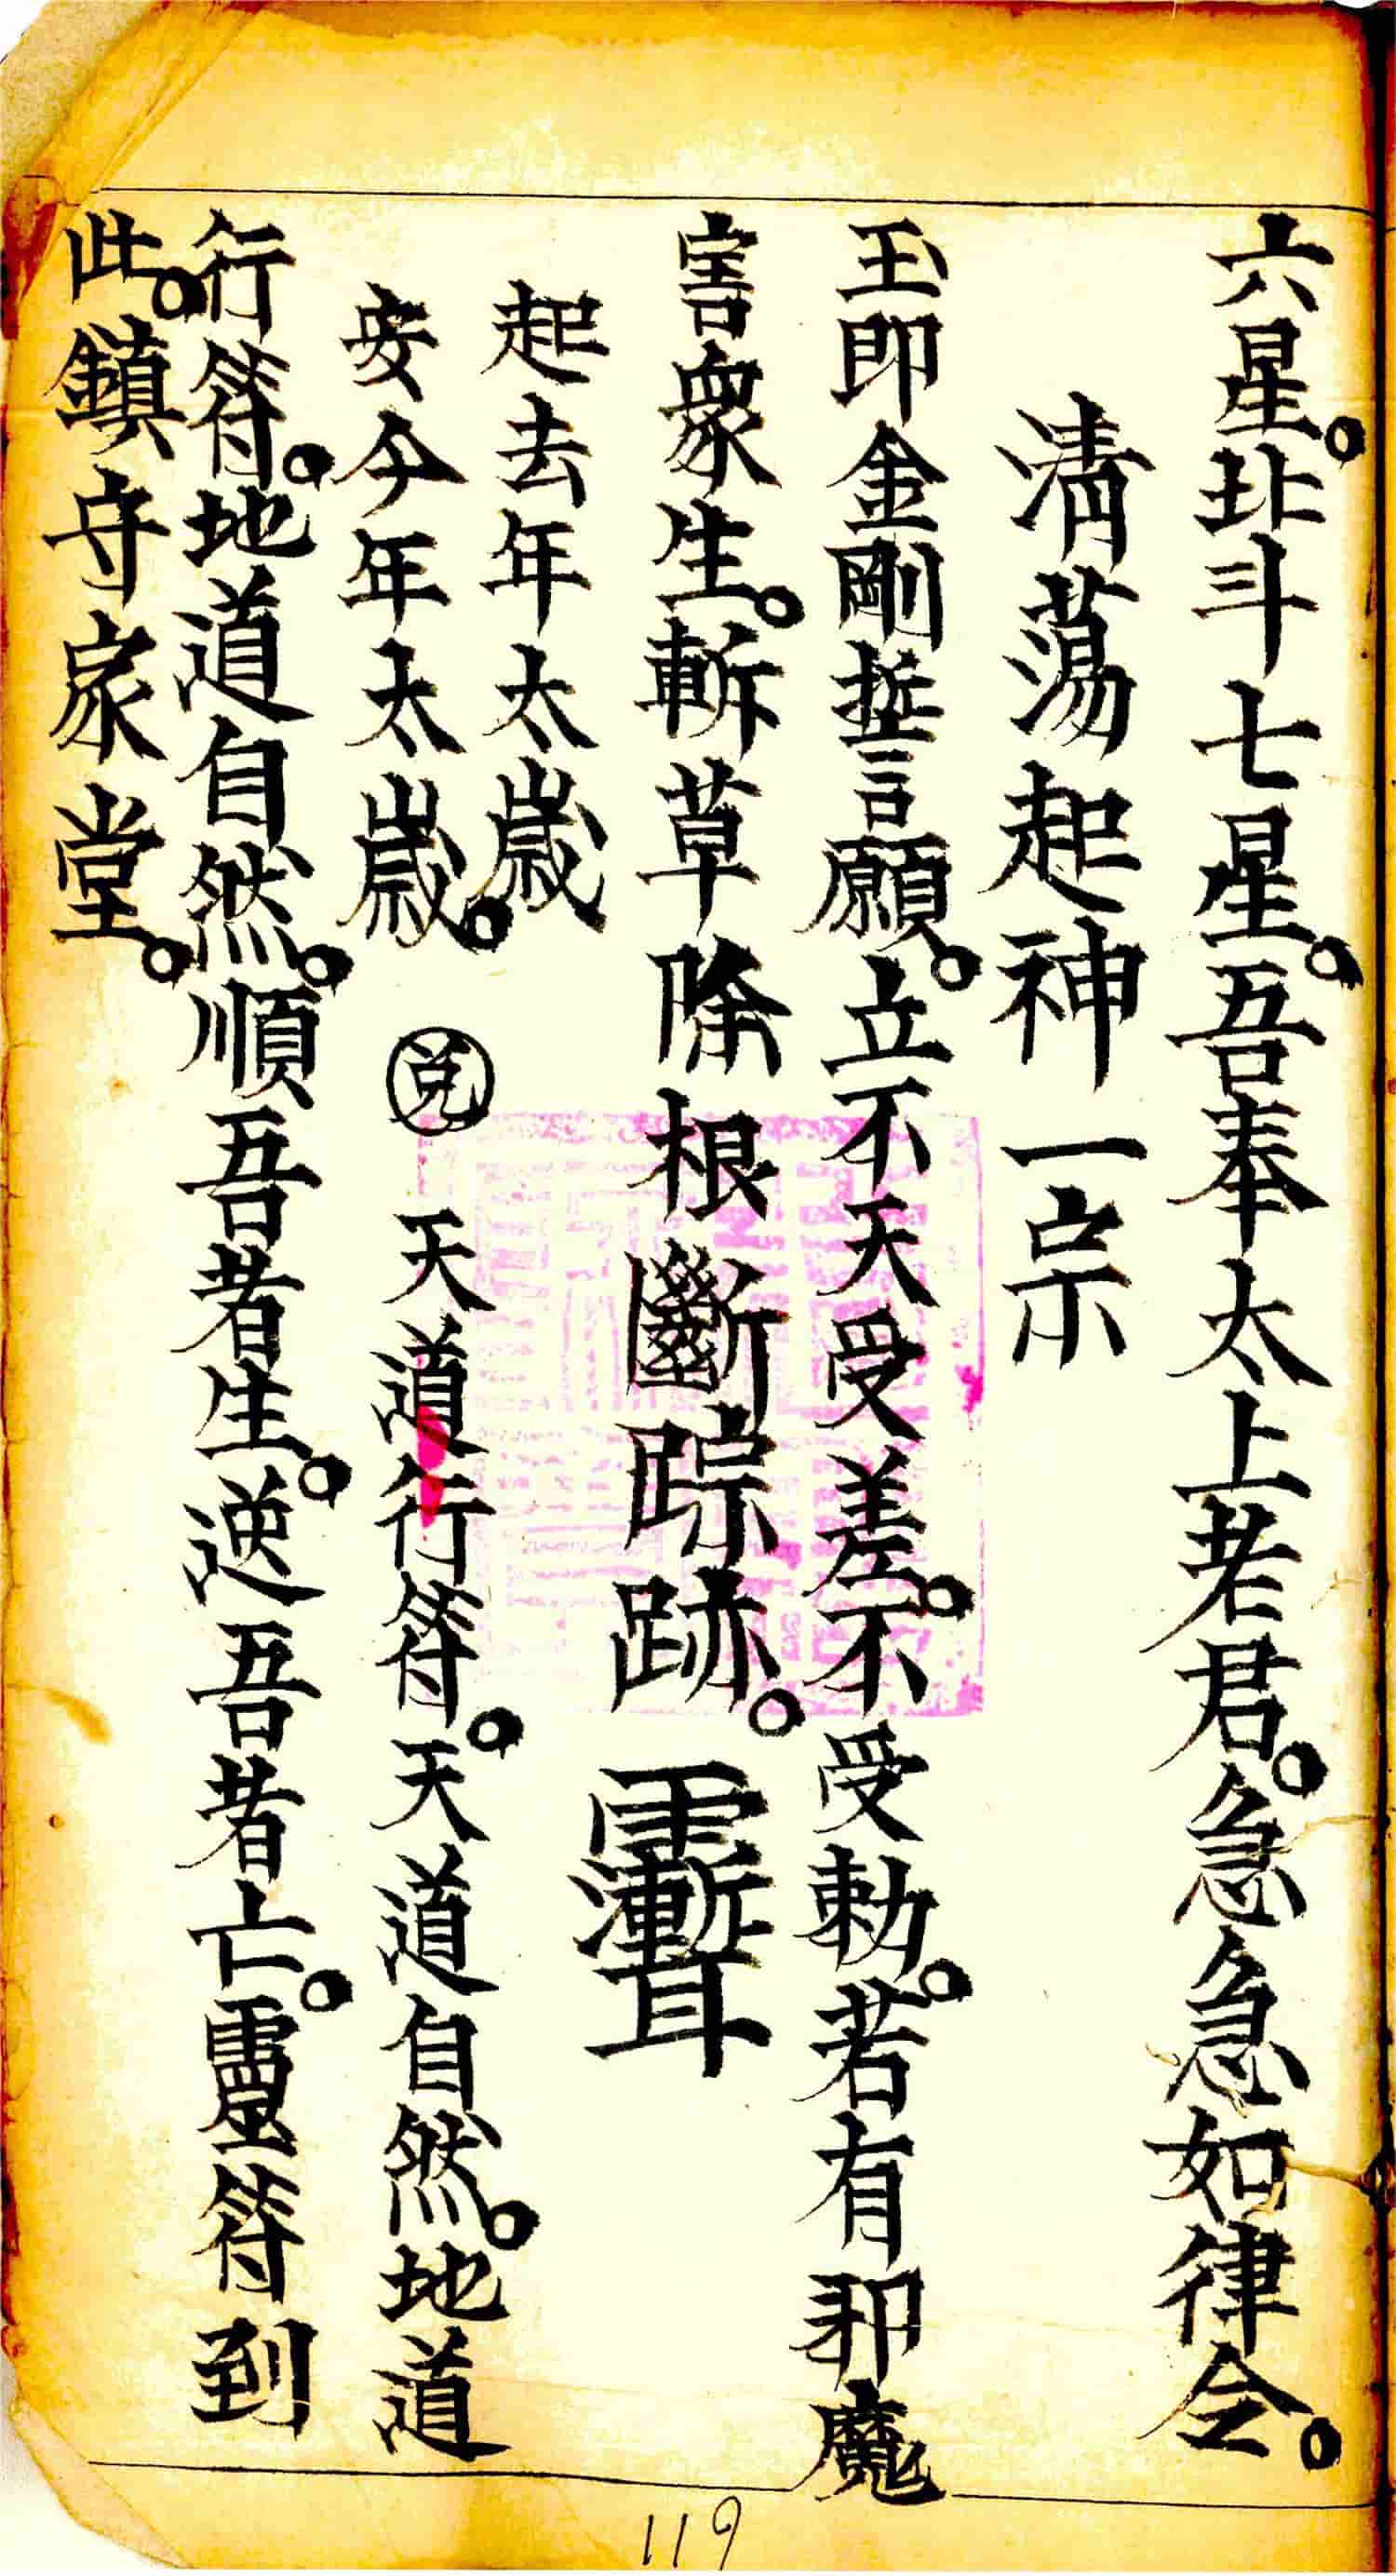 六星。北斗七星。吾奉太上老君。急急如律令。
清蕩起神一宗
玉即金剛誓願。立不天受差。不受勅。若有邪魔
害衆生。斬草除根斷踪跡。
起去年太歲
安今年太歲。兌天道行符。天道自然。地道
行符。地道自然。順吾者生。逆吾者亡。靈符到
此。鎮守家堂。
119